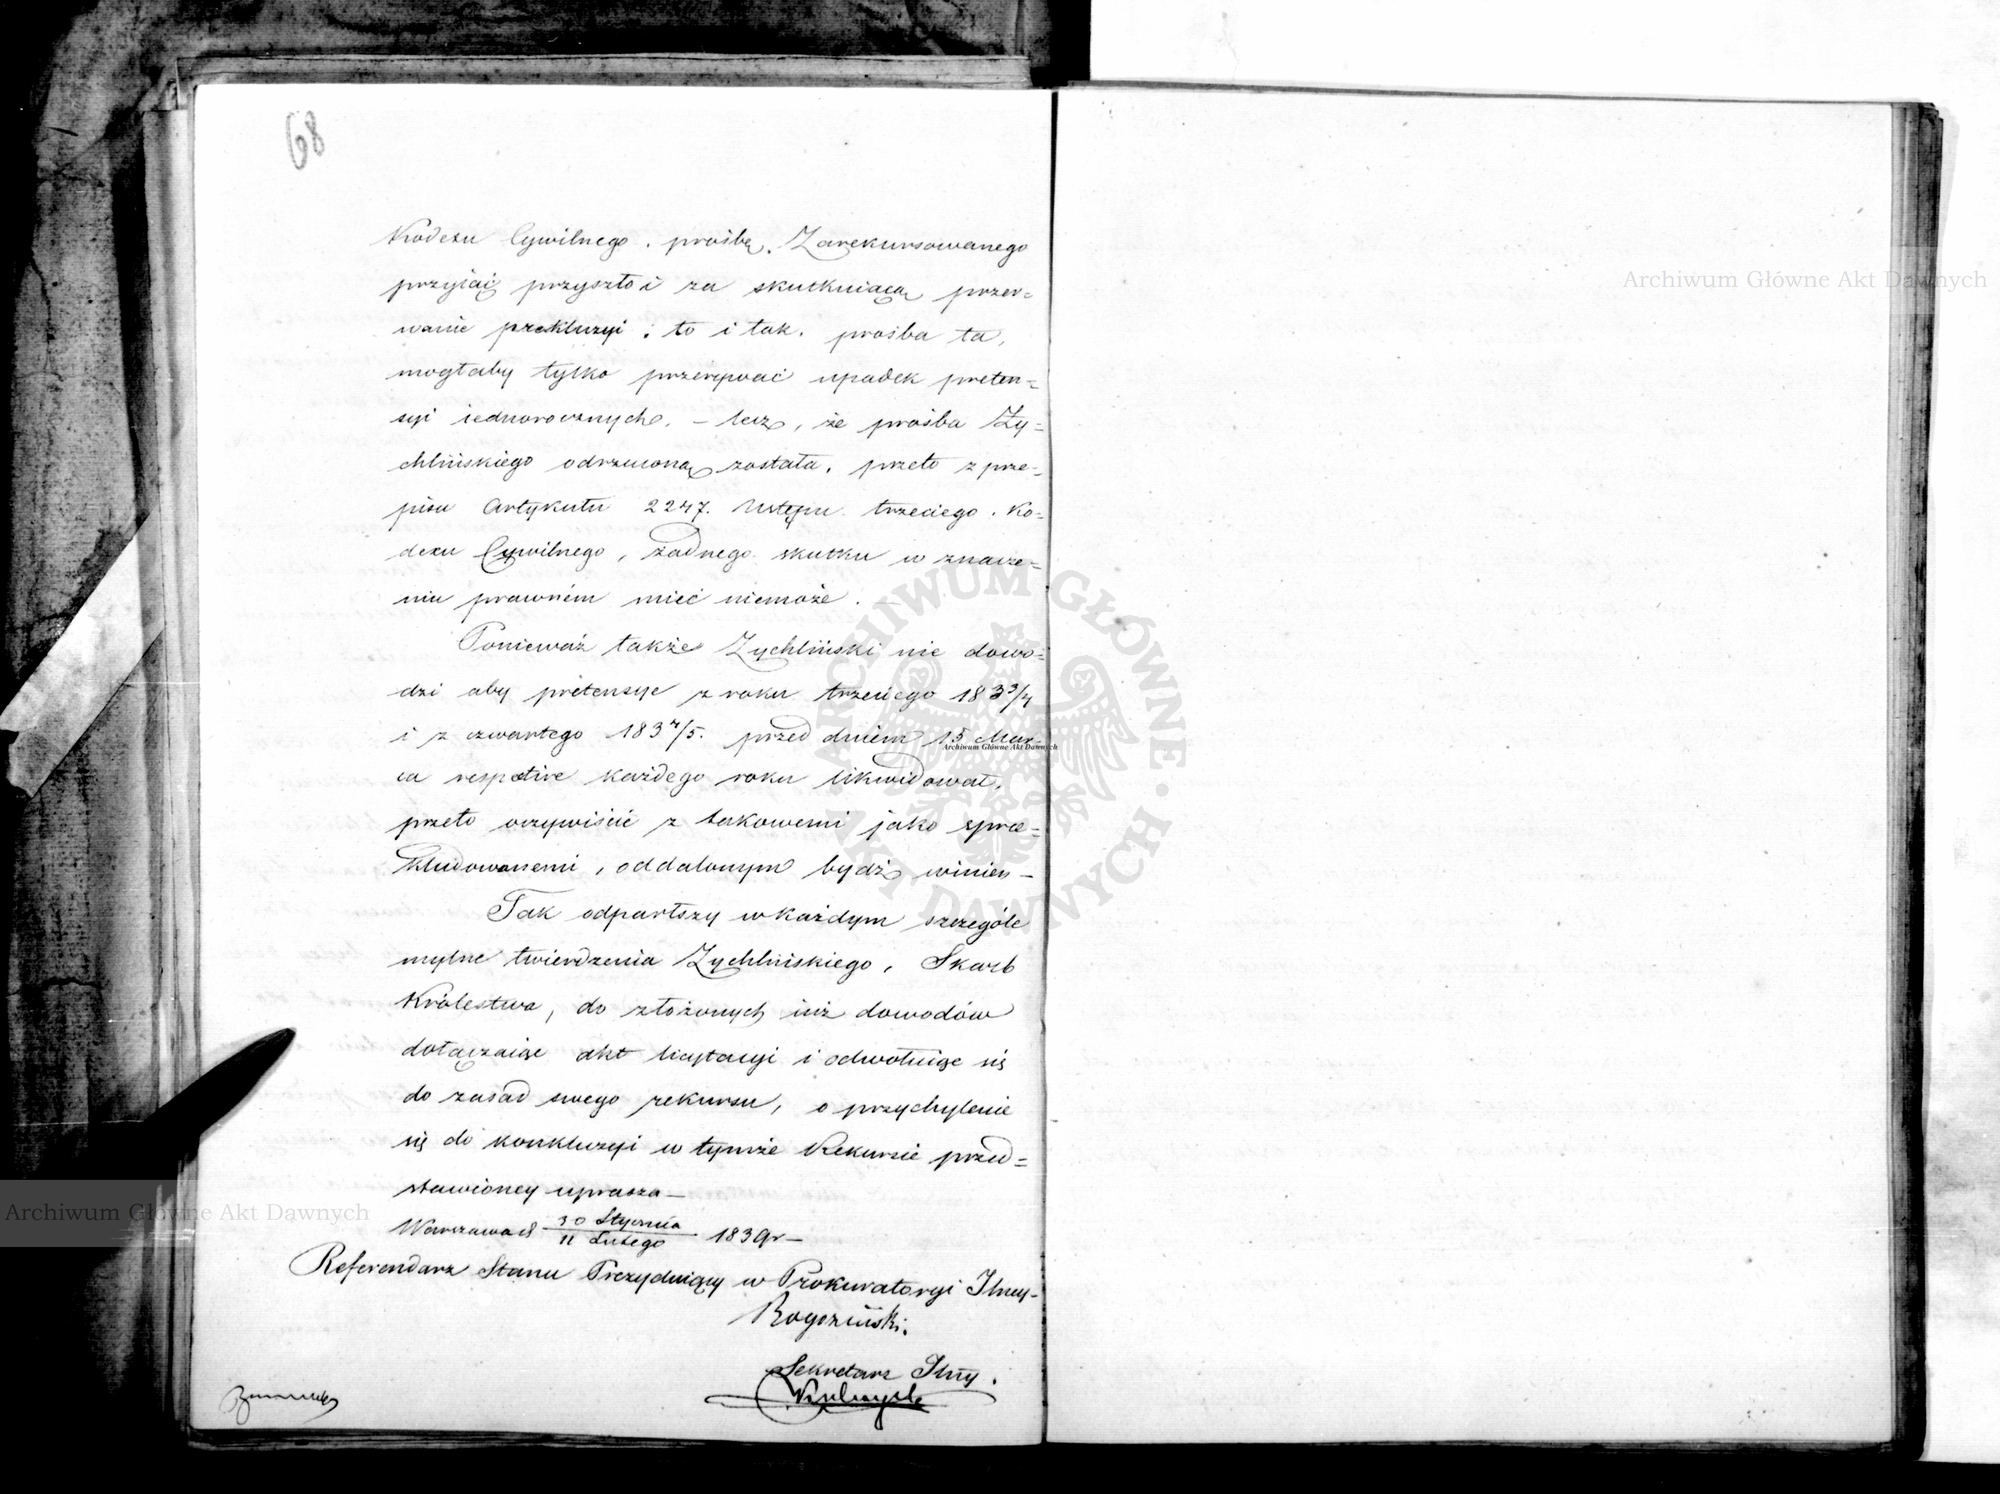 68
Kodexu Cywilnego, prośbę Zarekursowanego
przyiąć przyszło i za skutkuiącą przer=
wanie prekluzyi; to i tak, prośba ta,
mogłaby tylko przerywać upadek preten=
syi iednorocznych, – lecz, że prośba Ży=
chlińskiego odrzuconą została, przeto z prze=
pisu Artykułu 2247. Ustępu trzeciego, Ko=
dexu Cywilnego, żadnego skutku w znacze=
niu prawnem mieć niemoże.
Ponieważ także Zychliński nie dowo=
dzi aby pretensye z roku trzeciego 183 3/4
i z czwartego 183 4/5. przed dniem 15 Mar=
ca respective każdego roku likwidował,
przeto oczywiście z takowemi jako spre=
kludowanemi, oddalonym bydź winien –
Tak odpartszy w każdym szczególe
mylne twierdzenia Zychlińskiego, Skarb
Królestwa, do złożonych iuż dowodów
dołączaiąc akt licytacyi i odwołuiąc się
do zasad swego rekursu, o przychylenie
się do konkluzyi w tymże Rekursie przed=
stawioney uprasza –
Warszawa d 30 Stycznia / 11 Lutego 1839 r –
Referendarz Stanu Prezyduiący w Prokuratoryi Jlney –
Rogoziński.
Sekretarz Jlny.
Archiwum Główne Akt Dawnych
Archiwum Główne Akt Dawnych
Archiwum Główne Akt Dawnych
ARCHIWUM GŁÓWNE AKT DAWNYCH